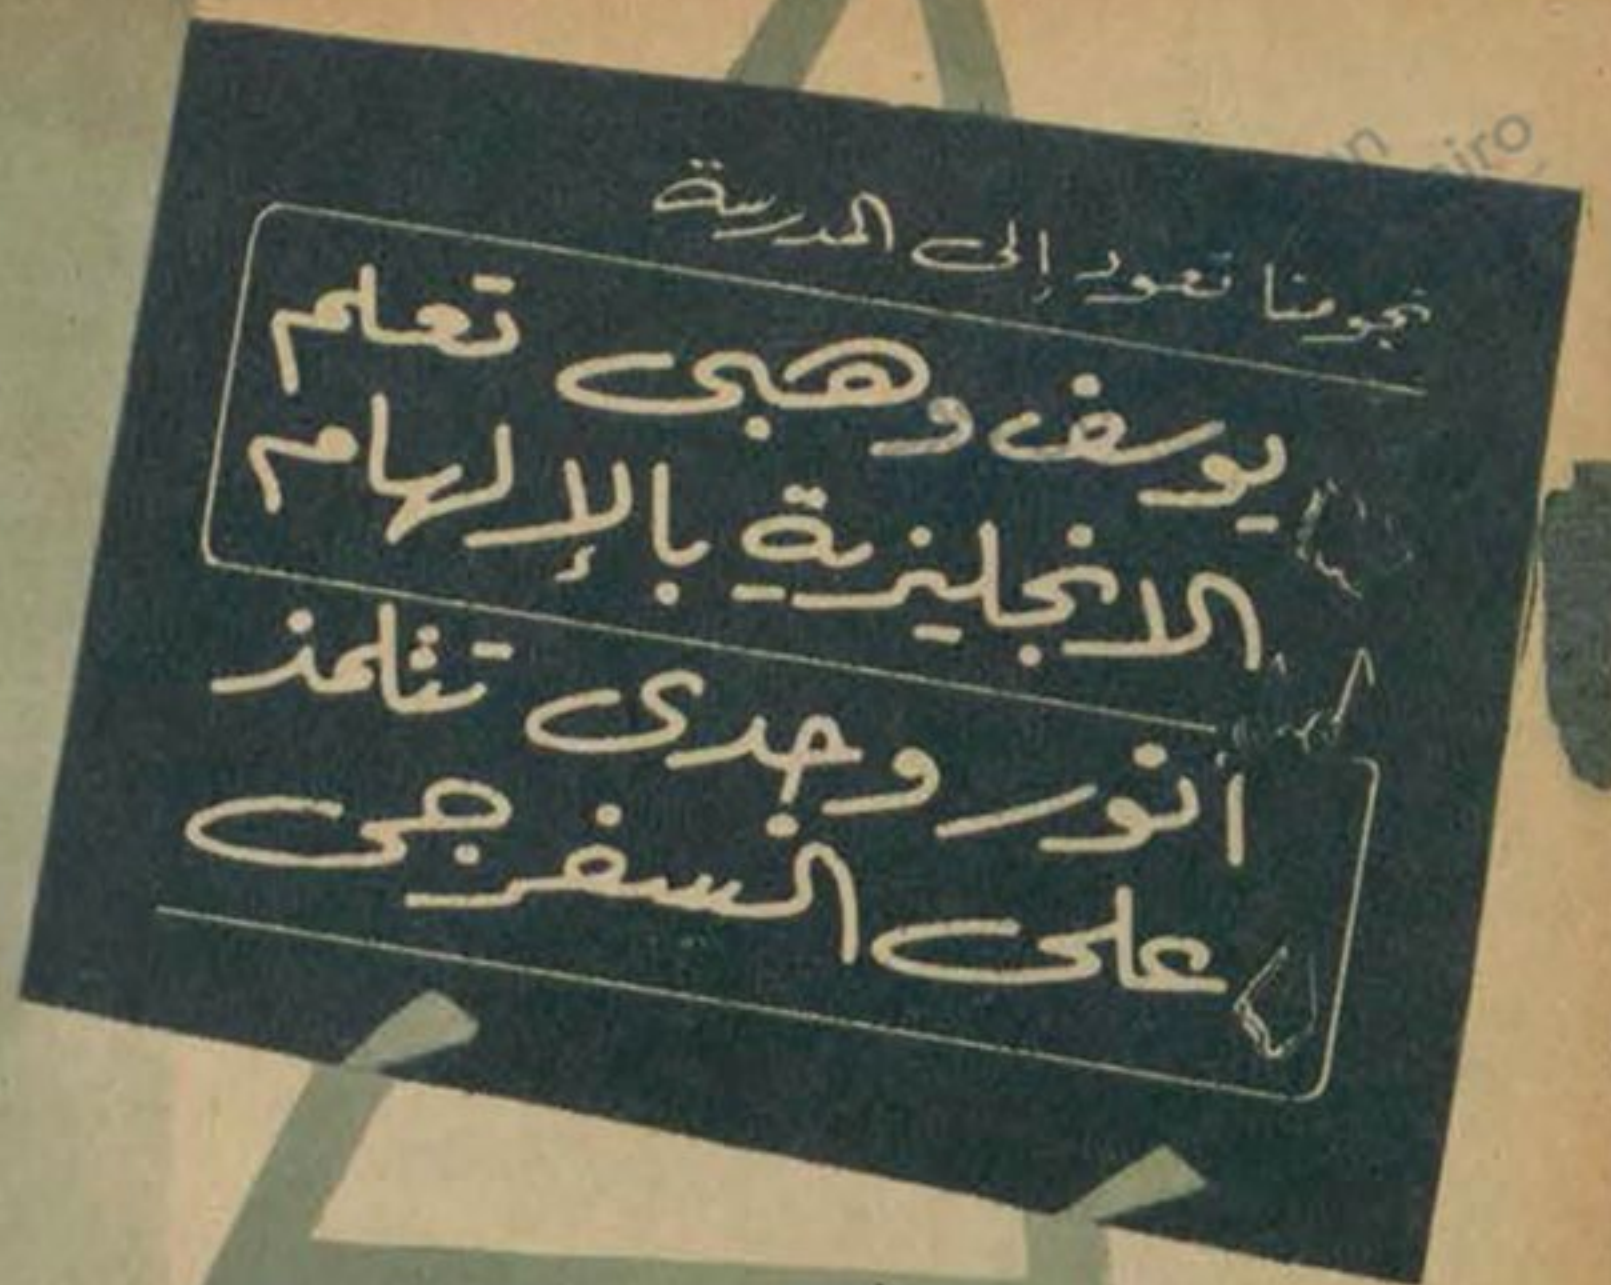 نجومنا تعود إلى المدرسة
يوسف وهبى تعلم
الانجليزية بالإلهام
أنور وجدى تتلمذ
على السفرجى